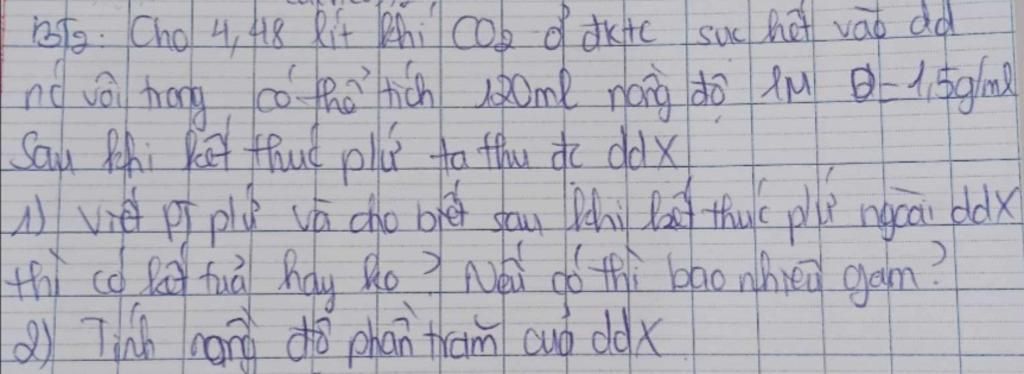 BT2: Cho 4,48 lít khí CO2 ở đktc sục hết vào dd
nc vôi trong có thể tích 120ml nồng độ 1M D=1,5g/ml
Sau khi kết thúc plứ ta thu đc ddX
1) Viết PT plứ và cho biết sau khi kết thúc plứ ngoài ddX
thì có kết tủa hay ko? Nếu có thì bao nhiêu gam?
2) Tính nồng độ phần trăm của ddX